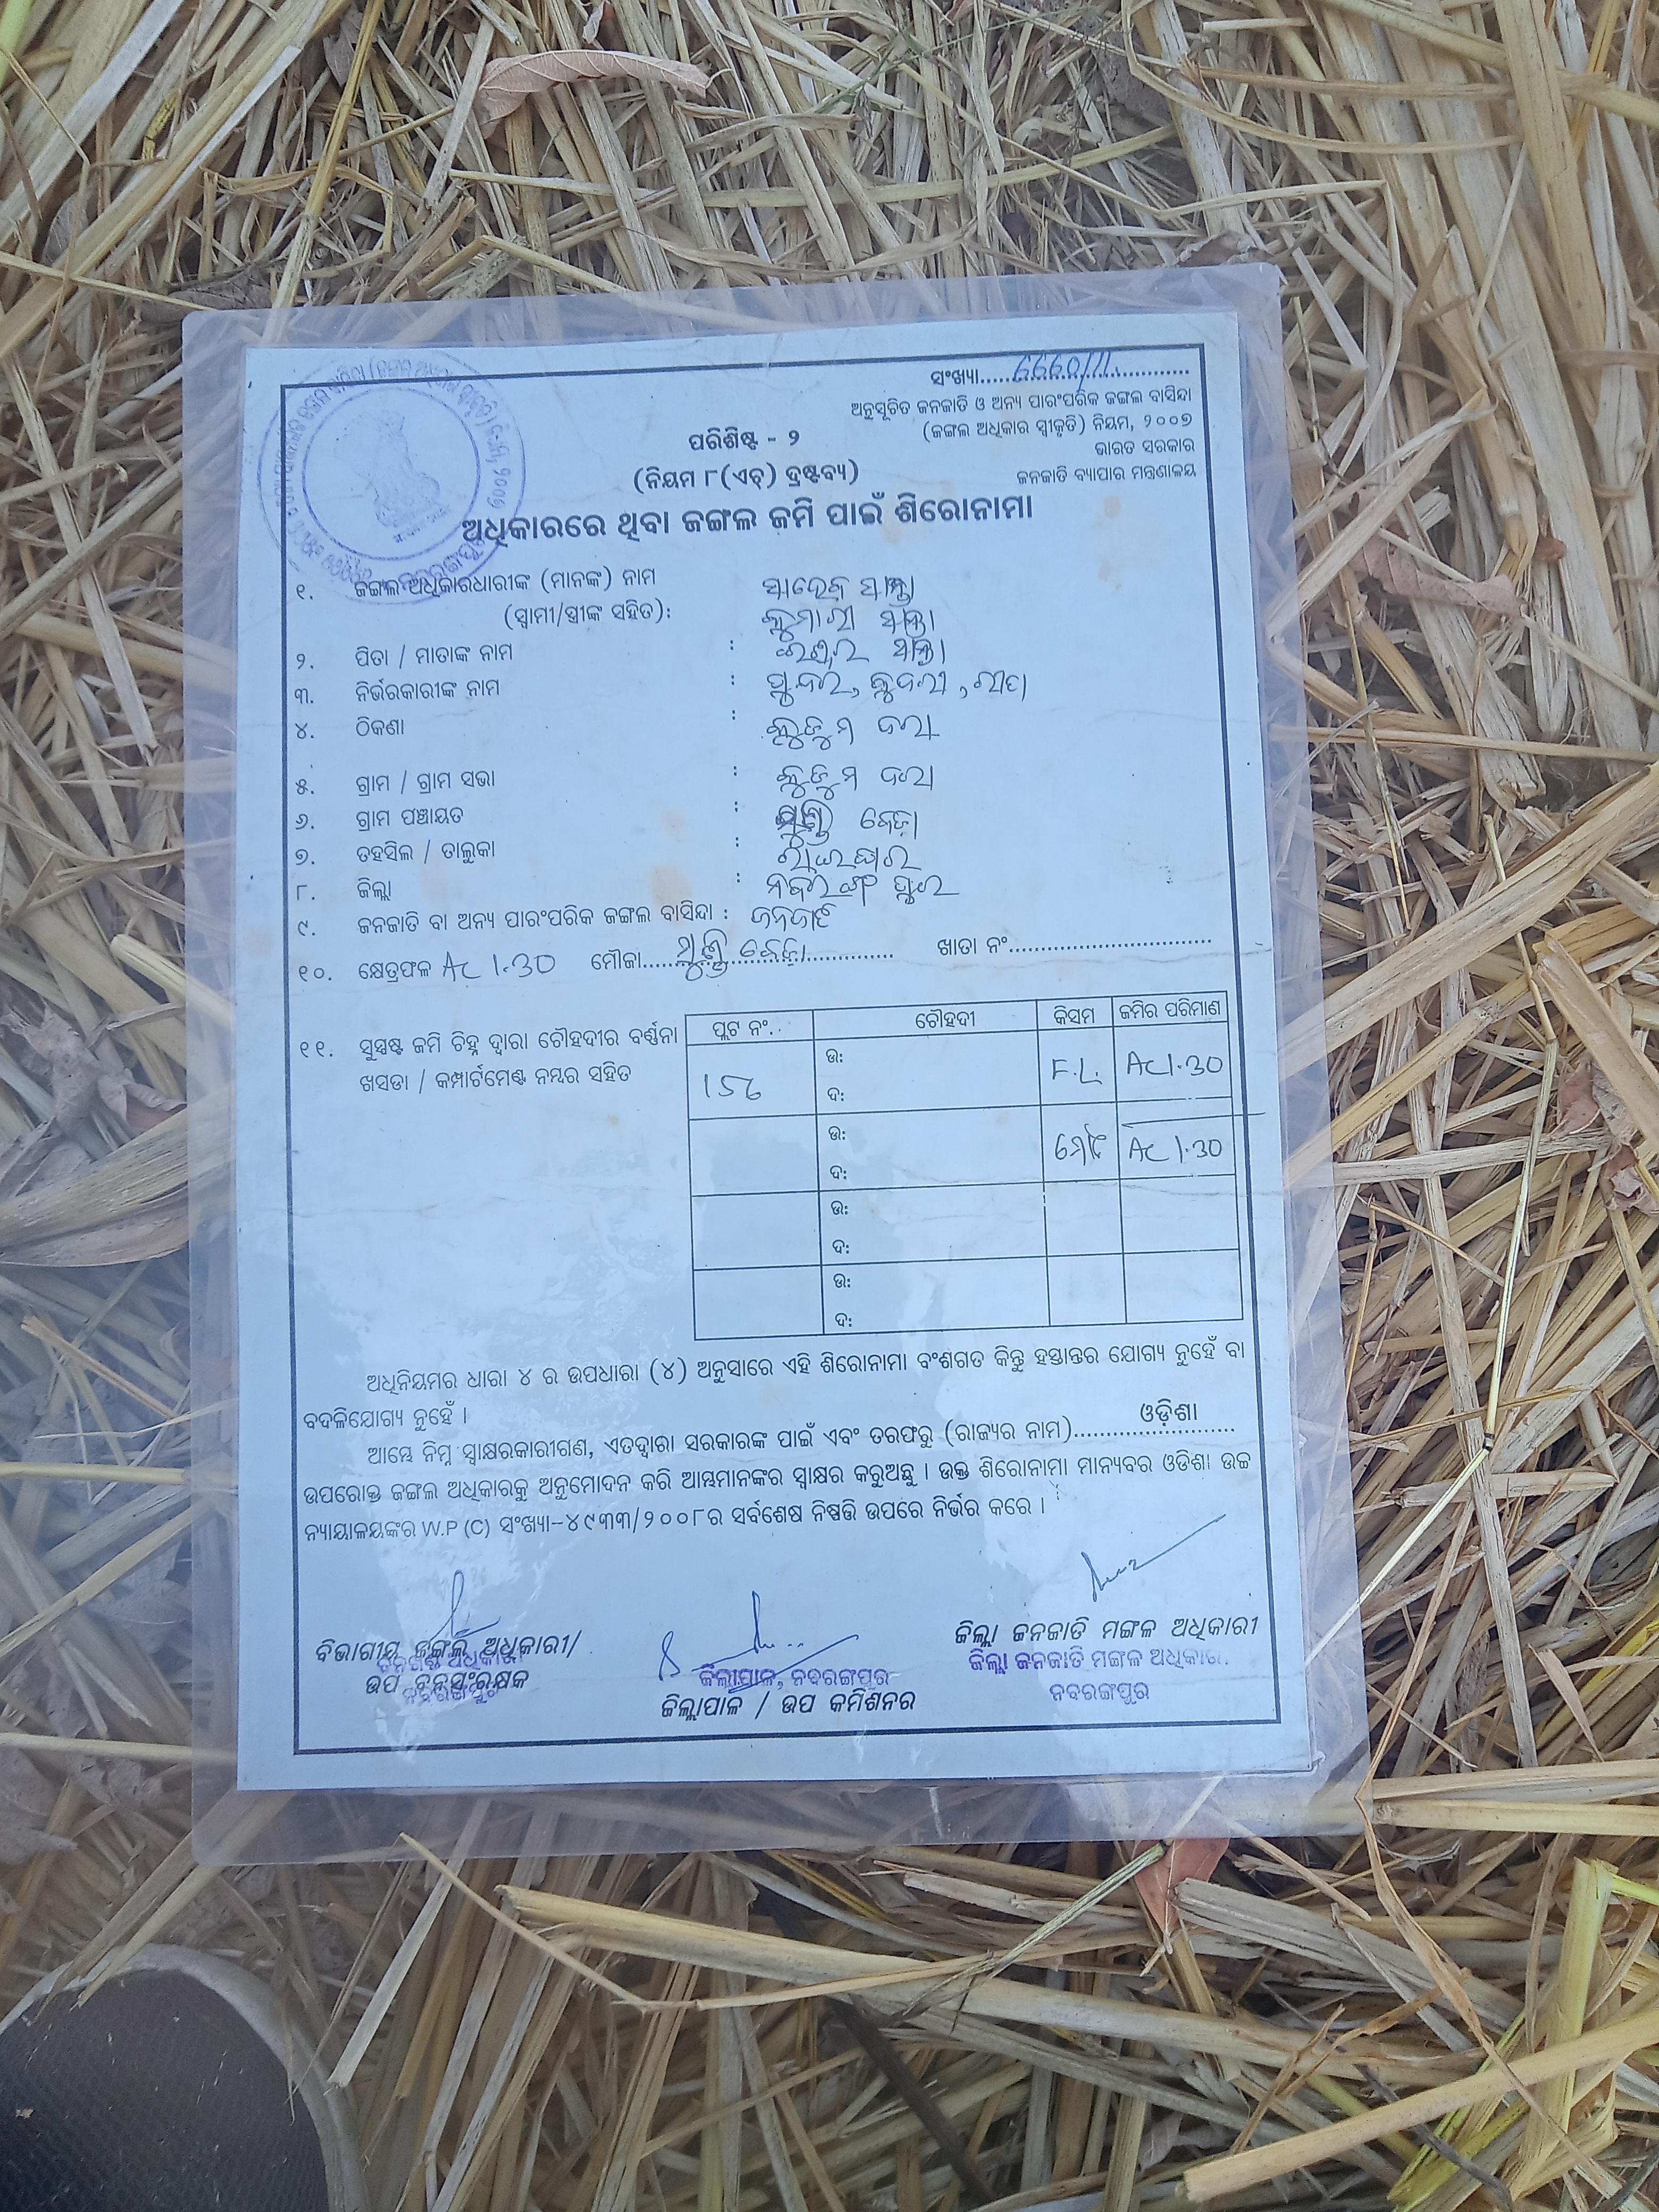 ସଂଖ୍ୟା..... 6660/11 .....
ଅନୁସୂଚିତ ଜନଜାତି ଓ ଅନ୍ୟ ପାରଂପରିକ ଜଙ୍ଗଲ ବାସିନ୍ଦା
(ଜଙ୍ଗଲ ଅଧିକାର ସ୍ୱୀକୃତି) ନିୟମ, ୨୦୦୭
ଭାରତ ସରକାର
ଜନଜାତି ବ୍ୟାପାର ମନ୍ତ୍ରଣାଳୟ
ପରିଶିଷ୍ଟ - ୨
(ନିୟମ ୮(ଏଚ୍) ଦ୍ରଷ୍ଟବ୍ୟ)
ଅଧିକାରରେ ଥିବା ଜଙ୍ଗଲ ଜମି ପାଇଁ ଶିରୋନାମା
୧. ଜଙ୍ଗଲ ଅଧିକାରଧାରୀଙ୍କ (ମାନଙ୍କ) ନାମ
(ସ୍ୱାମୀ/ସ୍ତ୍ରୀଙ୍କ ସହିତ):
୨. ପିତା / ମାତାଙ୍କ ନାମ :
୩. ନିର୍ଭରକାରୀଙ୍କ ନାମ :
୪. ଠିକଣା :
୫. ଗ୍ରାମ / ଗ୍ରାମ ସଭା :
୬. ଗ୍ରାମ ପଞ୍ଚାୟତ :
୭. ତହସିଲ / ତାଲୁକା : ରାଇଘର
୮. ଜିଲ୍ଲା : ନବରଙ୍ଗପୁର
୯. ଜନଜାତି ବା ଅନ୍ୟ ପାରଂପରିକ ଜଙ୍ଗଲ ବାସିନ୍ଦା : ଜନଜାତି
୧୦. କ୍ଷେତ୍ରଫଳ AC 1.30 ମୌଜା..... ଖାତା ନଂ.....
୧୧. ସୁସ୍ପଷ୍ଟ ଜମି ଚିହ୍ନ ଦ୍ୱାରା ଚୌହଦୀର ବର୍ଣ୍ଣନା
ଖସଡା / କମ୍ପାର୍ଟମେଣ୍ଟ ନମ୍ବର ସହିତ
ପ୍ଲଟ ନଂ.. ଚୌହଦୀ କିସମ ଜମିର ପରିମାଣ
156 ଉ: F.L. AC 1.30
ଦ:
ଉ: ମୋଟ AC 1.30
ଦ:
ଉ:
ଦ:
ଉ:
ଦ:
ଅଧିନିୟମର ଧାରା ୪ ର ଉପଧାରା (୪) ଅନୁସାରେ ଏହି ଶିରୋନାମା ବଂଶଗତ କିନ୍ତୁ ହସ୍ତାନ୍ତର ଯୋଗ୍ୟ ନୁହେଁ ବା
ବଦଳିଯୋଗ୍ୟ ନୁହେଁ ।
ଆମ୍ଭେ ନିମ୍ନ ସ୍ୱାକ୍ଷରକାରୀଗଣ, ଏତଦ୍ୱାରା ସରକାରଙ୍କ ପାଇଁ ଏବଂ ତରଫରୁ (ରାଜ୍ୟର ନାମ)..... ଓଡ଼ିଶା .....
ଉପରୋକ୍ତ ଜଙ୍ଗଲ ଅଧିକାରକୁ ଅନୁମୋଦନ କରି ଆମ୍ଭମାନଙ୍କର ସ୍ୱାକ୍ଷର କରୁଅଛୁ । ଉକ୍ତ ଶିରୋନାମା ମାନ୍ୟବର ଓଡିଶା ଉଚ୍ଚ
ନ୍ୟାୟାଳୟଙ୍କର W.P (C) ସଂଖ୍ୟା-୪୯୩୩/୨୦୦୮ର ସର୍ବଶେଷ ନିଷ୍ପତ୍ତି ଉପରେ ନିର୍ଭର କରେ ।
ବିଭାଗୀୟ ଜଙ୍ଗଲ ଅଧିକାରୀ/
ଉପ ବନସଂରକ୍ଷକ
ଜିଲ୍ଲାପାଳ, ନବରଙ୍ଗପୁର
ଜିଲ୍ଲାପାଳ / ଉପ କମିଶନର
ଜିଲ୍ଲା ଜନଜାତି ମଙ୍ଗଳ ଅଧିକାରୀ
ଜିଲ୍ଲା ଜନଜାତି ମଙ୍ଗଳ ଅଧିକାରୀ
ନବରଙ୍ଗପୁର